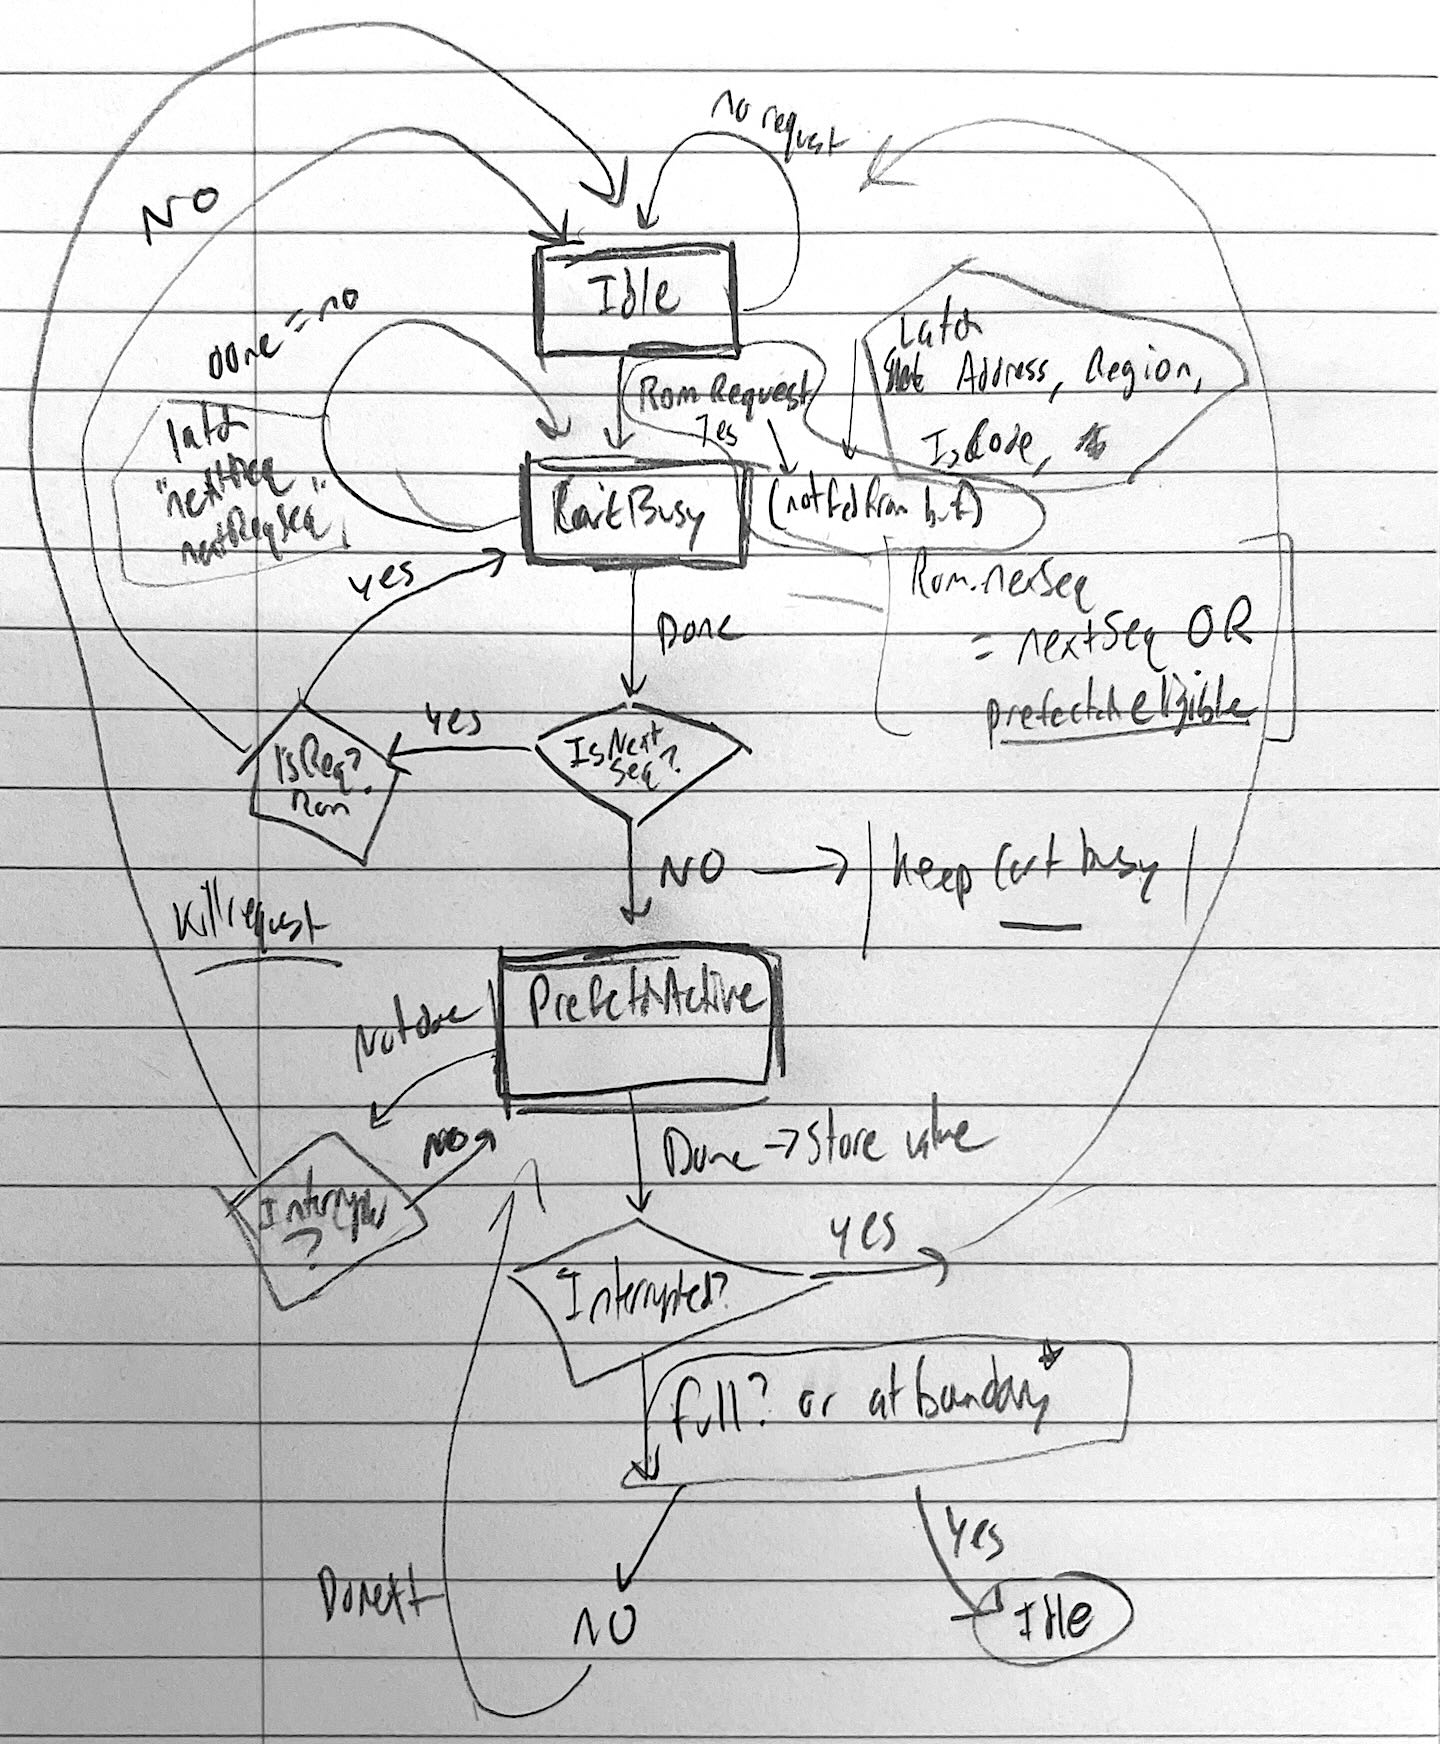 no request
NO
Idle
Done = no
Latch
Address, Region,
IsCode,
Rom Request
Yes
latch
"nextHSeq"
nextReqSeq
CartBusy
(not fed from buf)
yes
Rom.nexSeq
= nextSeq OR
prefectch elgible
Done
Yes
IsNext
Seq?
IsReq?
Rom
NO → | keep Cart busy |
Kill request
PrefetchActive
Not done
NO
Done → Store value
Interrupted
?
yes
Interrupted?
full? or at boundary*
Yes
NO
Idle